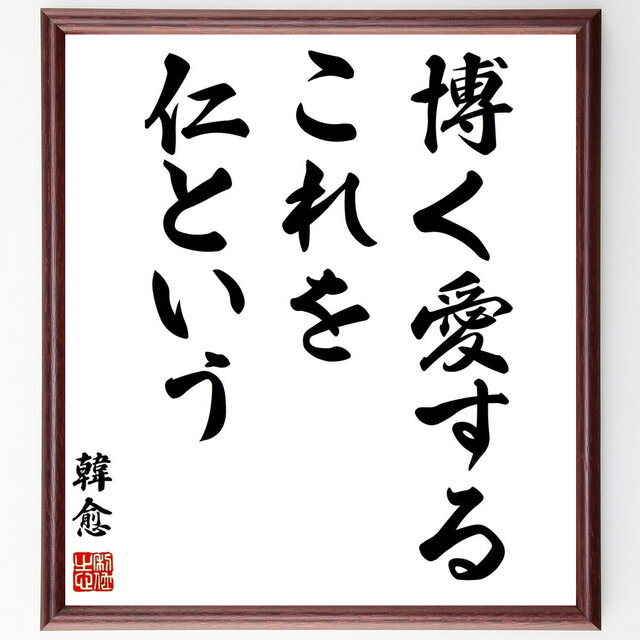 博く愛する
これを
仁という
韓愈